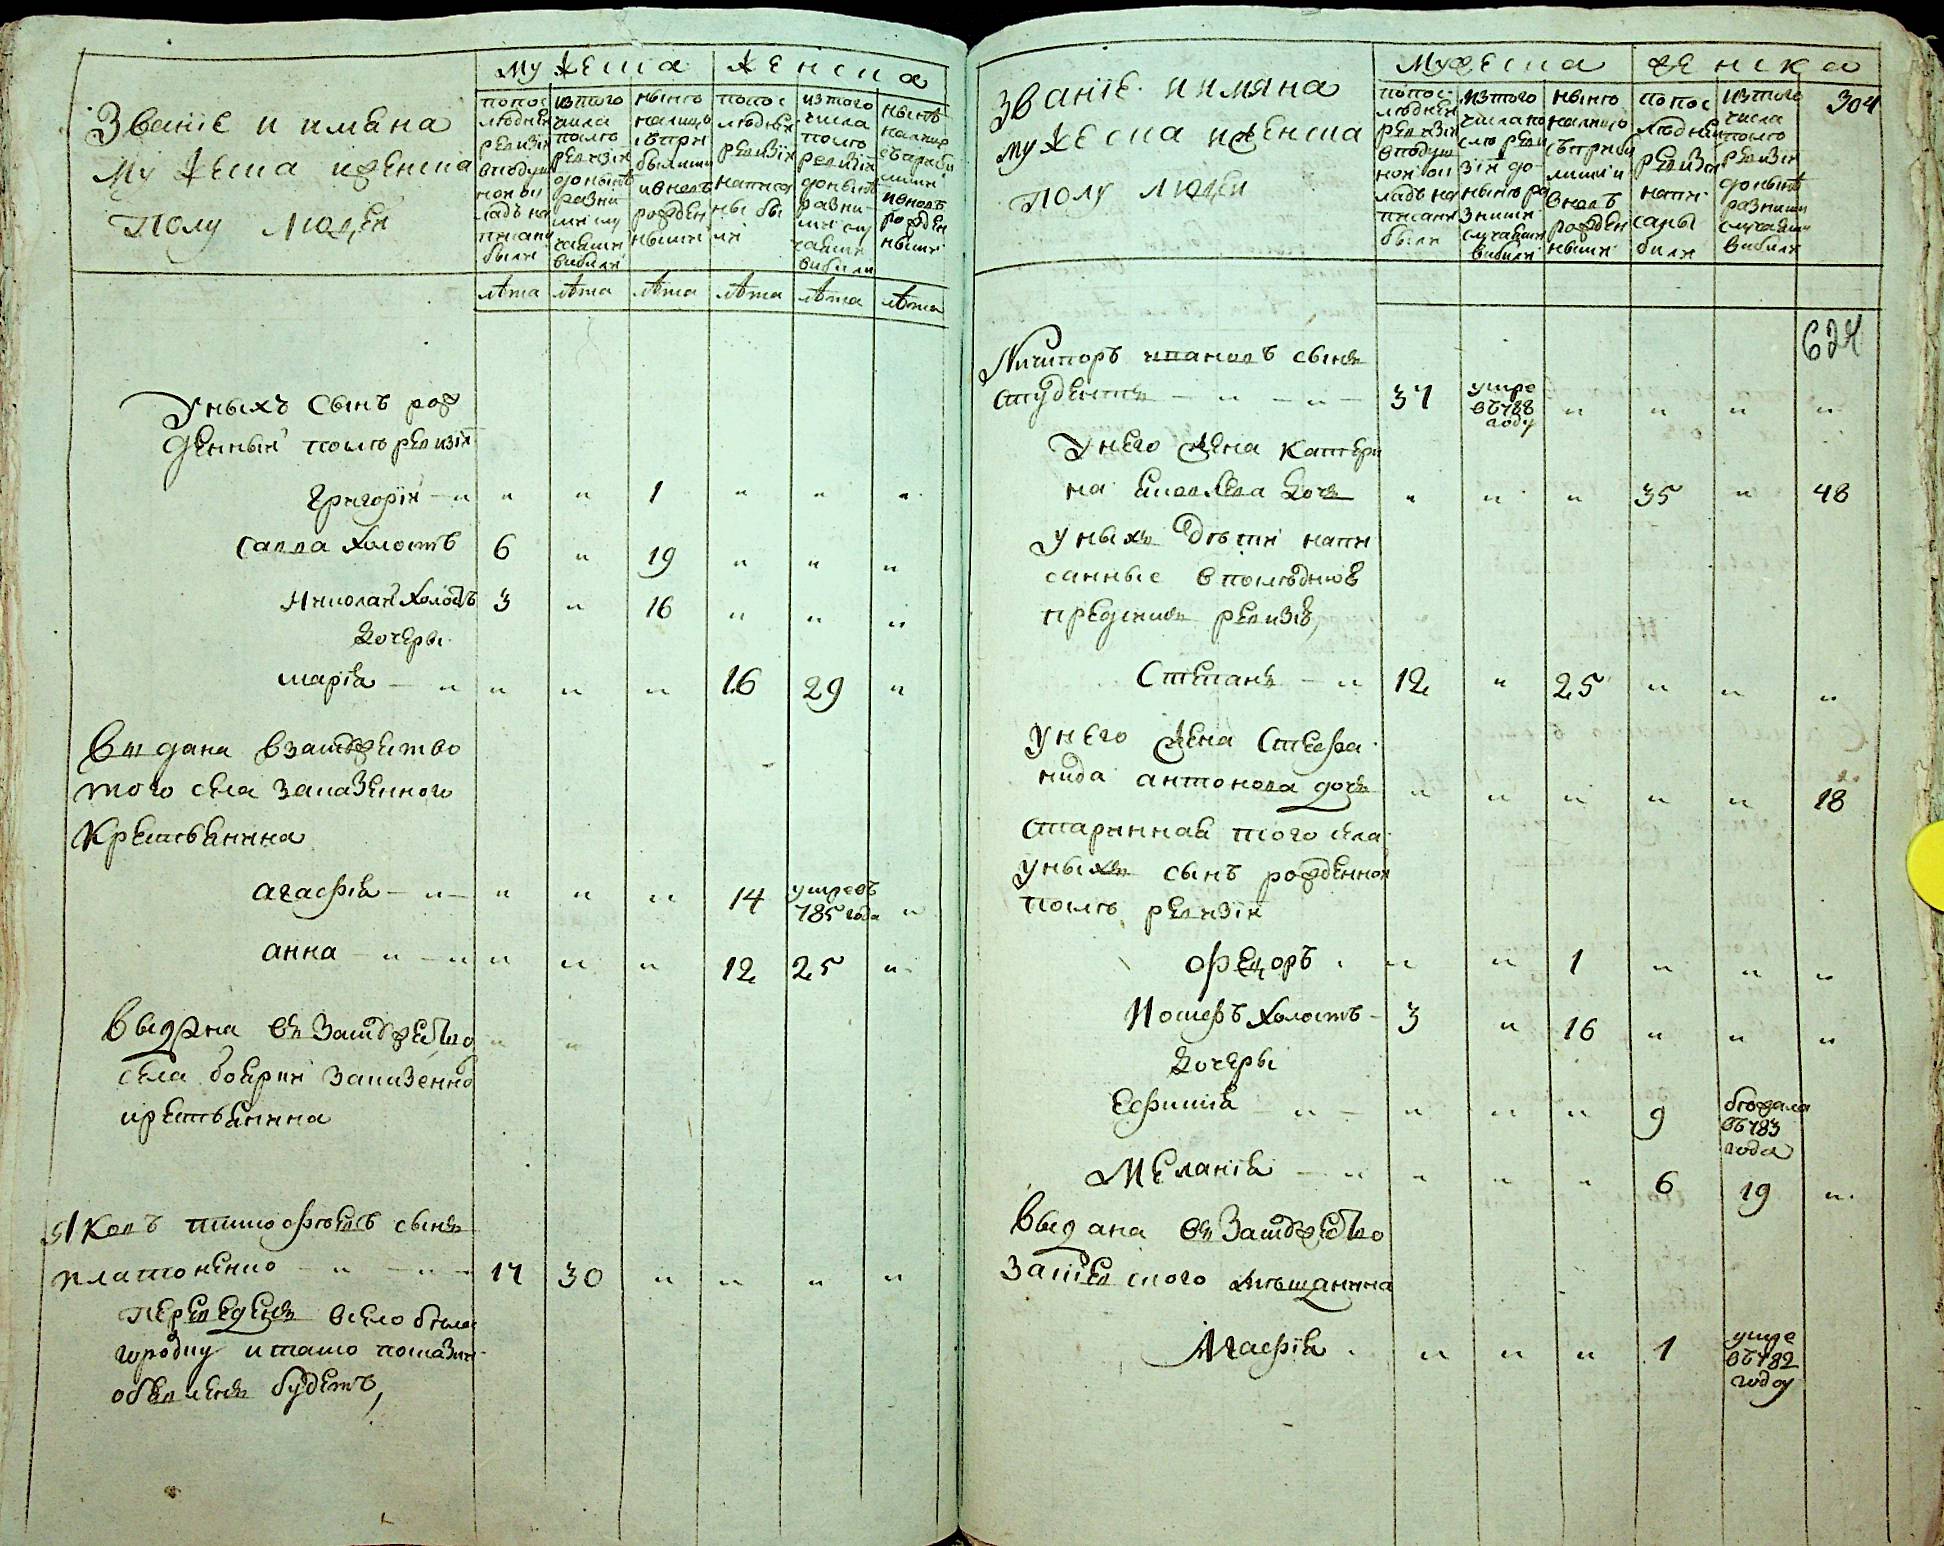 Званіе и имяна
мужеска иженска
полу людей
мужеска
женска
попос
людней
ревизіи
вподуш
ной ок
ладъ на
писаны
были
изтого
числа
послѣ
ревизіи
донынѣ
разны
ми слу
чаями
выбыли
нынѣ
налицо
съ при
былыми
ивновь
рожден
ными
попос
людней
ревизіи
написа
ны бы
ли
изтого
числа
послѣ
ревизіи
донынѣ
разны
ми слу
чаями
выбыли
нынѣ
налицо
съприбы
лыми
ивновь
рожден
ными
лѣта лѣта лѣта лѣта лѣта лѣта
Уныхъ сынъ рож
денный послѣ ревизіи
Григорій - " " " 1 " " "
Савва холостъ 6 " 19 " " "
Николай холостъ 3 " 16 " " "
Дочери
марія - " " " " 16 29 "
Выдана взамужество
того села казенного
Крестьянина
агафія - " - " " " 14 умре въ
785 года "
анна - " - " " " " 12 25 "
Выдана въ замужество " "
села боярки казенного
крестьянина
Яковъ тимофѣевъ сынъ
платоненко - " - " - 17 30 " " " "
переведенъ вSело бѣло
городку итамо показан
объявленъ будетъ,
Званіе и имяна
мужеска иженска
полу людей
Мужеска
женска
попос
людней
ревизіи
вподуш
ной ок
ладъ на
писаны
были
изтого
числа по
слѣ реви
зіи до
нынѣ ра
зными
случаями
выбыли
нынѣ
налицо
съприбы
лыми и
вновь
рожден
ными
попос
людней
ревизіи
напи
саны
были
изтого
числа
послѣ
ревизіи
донынѣ
разными
случаями
выбыли
304
624
Ничипоръ ивановъ сынъ
студентъ - " - " - 37 умре
въ 788
году " " " "
Унего жена Катери
на яковлева дочь " " " 35 " 48
Уныхъ дѣти напи
санные впослѣдней
предъ симъ ревизіи,
Степанъ - " 12 " 25 " " "
Унего жена Стефа
нида антонова дочь " " " " " 18
старинная того села
Уныхъ сынъ рожденной
послѣ ревизіи
Федоръ " " 1 " " "
Иосифъ холостъ - 3 " 16 " " "
Дочери
Ефимія - " - " " " 9 бежала
въ 783
года
Меланія - " " " " 6 19 "
Выдана въ замужество
мѣщанина
Агафія " " " 1 умре
въ 782
году